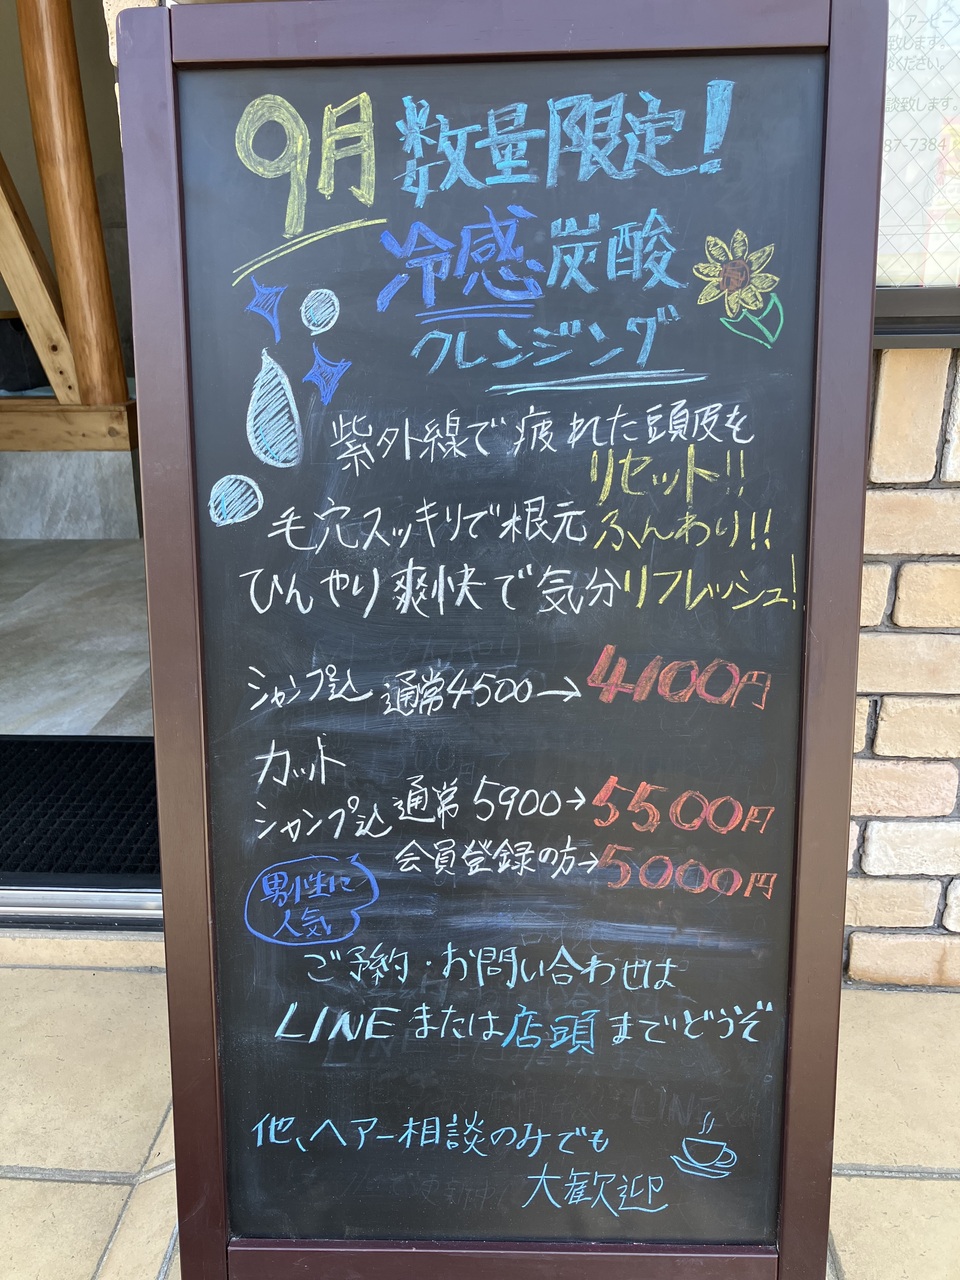 9月 数量限定!
冷感炭酸
クレンジング
紫外線で疲れた頭皮を
リセット!!
毛穴スッキリで根元ふんわり!!
ひんやり爽快で気分リフレッシュ!
シャンプー込 通常4500→4100円
カット
シャンプー込 通常5900→5500円
会員登録の方→5000円
男性に
人気
ご予約・お問い合わせは
LINEまたは店頭までどうぞ
他、ヘアー相談のみでも
大歓迎
ヘアーピー
致します。
ください。
談致します。
87-7384